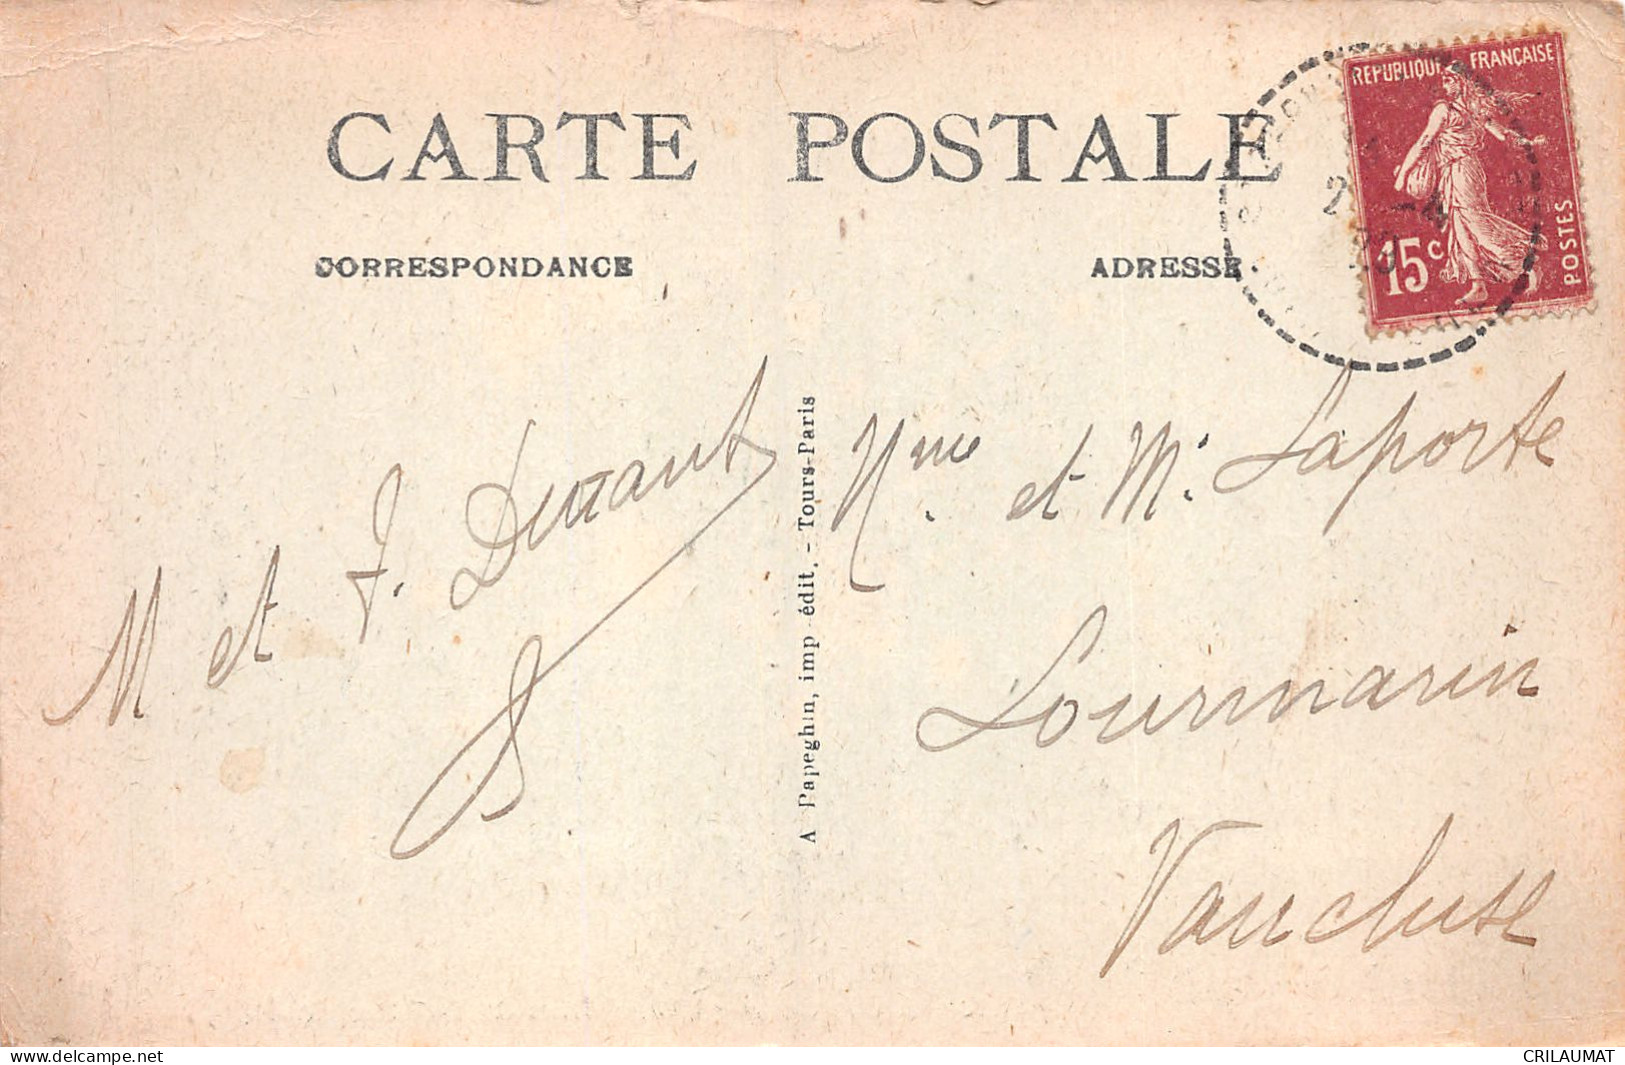 CARTE POSTALE
CORRESPONDANCE
ADRESSE
REPUBLIQUE FRANÇAISE
15c
POSTES
2 -4
M et J. Durant
A Papeghin, imp-édit. - Tours-Paris
Mme et Mr Laporte
Lourmarin
Vaucluse
www.delcampe.net
CRILAUMAT